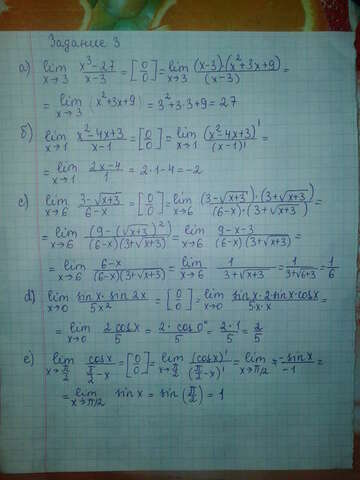 Задание 3
a) lim x→3 (x³-27)/(x-3) = [0/0] = lim x→3 (x-3)·(x²+3x+9)/(x-3) =
= lim x→3 (x²+3x+9) = 3²+3·3+9 = 27
б) lim x→1 (x²-4x+3)/(x-1) = [0/0] = lim x→1 (x²-4x+3)'/(x-1)' =
= lim x→1 (2x-4)/1 = 2·1-4 = -2
c) lim x→6 (3-√(x+3))/(6-x) = [0/0] = lim x→6 (3-√(x+3))·(3+√(x+3))/((6-x)·(3+√(x+3))) =
= lim x→6 (9-(√(x+3))²)/((6-x)(3+√(x+3))) = lim x→6 (9-x-3)/((6-x)(3+√(x+3))) =
= lim x→6 (6-x)/((6-x)(3+√(x+3))) = lim x→6 1/(3+√(x+3)) = 1/(3+√(6+3)) = 1/6
d) lim x→0 (sin x · sin 2x)/(5x²) = [0/0] = lim x→0 (sin x · 2 sin x · cos x)/(5·x·x) =
= lim x→0 (2 cos x)/5 = (2·cos 0°)/5 = (2·1)/5 = 2/5
e) lim x→π/2 cos x/(π/2 - x) = [0/0] = lim x→π/2 (cos x)'/(π/2 - x)' = lim x→π/2 (-sin x)/(-1) =
= lim x→π/2 sin x = sin(π/2) = 1